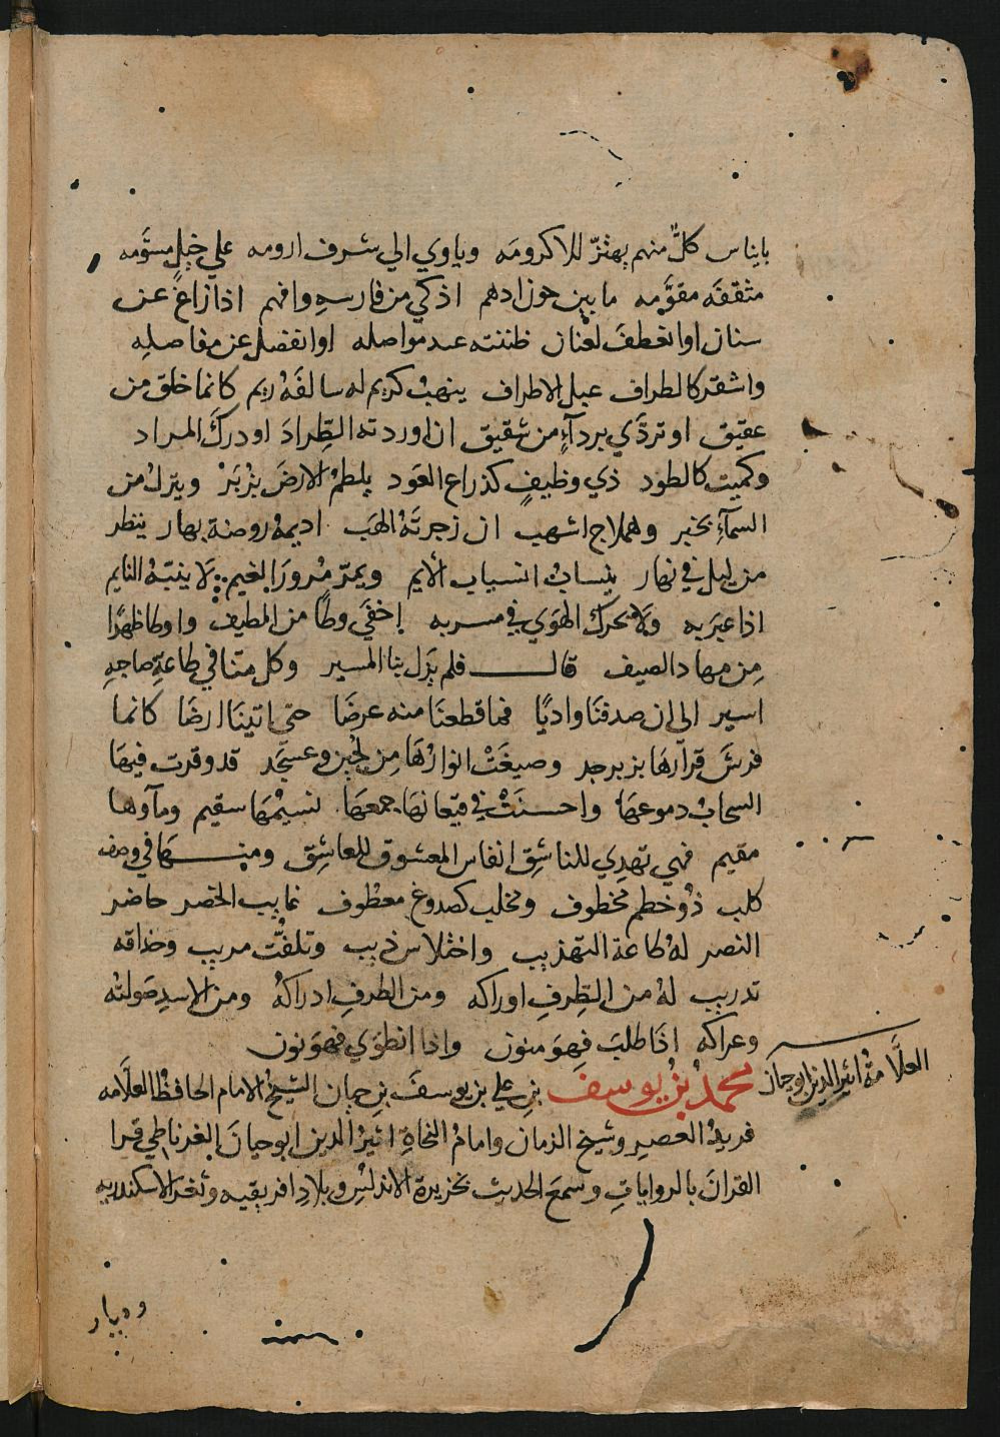 باناس كلٌّ منهم يهتزّ للاكرومَه وياوي الي شرف ارومه علي خيلٍ مسوَّمه
مثقفَه مقوَّمه ما بين جون ادهم اذكي من فارسهِ وافهم اذا زاغ عن
سنان او انعطفَ لعنان ظننته عند مواصله او انفصل عن مفاصلِه
واشقر كالطراف عبل الاطراف ينهبُ كريم له سالفَهُ ريم كانما خلق من
عقيق او تردَّي بردآءٍ من شقيق ان اوردته الطِّرادَ اودرك المراد
وكميت كالطود ذي وظيفٍ كذراع العَود يلطمُ الارضَ بزُبَرْ وينزلُ من
السمآءِ بخبر وهملاج اشهب ان زجرتَهُ الهَب اديمهُ روضة بهار ينظر
من ليل في نهار ينسابُ انسياب الأيم ويمرّ مُرورَ الغيم لَا ينبّهُ النايم
اذا عبَر به ولَا يحرك الهوَي في مسربه اخفَي وطًا من الطيف واوطا ظهرًا
مِن مهاد الصيف قال فلم يزل بنا المسير وكل منّا في طاعةِ صاحبهِ
اسير الي ان صدفنَا واديًا فما قطعنَا منه عرضَا حتي اتينَا ارضَا كانما
فرشَ قرآرهَا بزبرجد وصيغَتْ انوارُهَا مِن لجين وعسجَد قد وقرت فيهَا
السحابُ دموعهَا واحسنَتْ في قيعانهَا جمعهَا نسيمُهَا سقيم ومآوها
مقيم فهي تهدِي للناشِق انفاس المعشوق للعاشِق ومنها في وصف
كلب ذُو خطم مخطوف ومخلب كصدوغ معطوف غايب الخصر حاضر
النصر لهُ طاعة التهذيب واختلاس ذيب وتلفُّت مريب وحذاقه
تدريب لهُ من الطِّرفِ اوراكه ومن الطرفِ ادراكهُ ومن الاسدِ صَولتُه
وعراكه اذَا طلبَ فهوَ منون واذا انطوَي فهوَ نون
العلَّامةُ اثير الدين ابو حيان
محمدُ بنُ يوسف بنِ علي بن يوسفَ بنِ حيان الشيخُ الامام الحافظُ العلَّامه
فريدُ العصر وشيخ الزمان وامامُ النحاةِ اثيرُ الدين ابو حيانَ الغرناطي قرا
القرانَ بالرواياتِ وسمعَ الحديث بجزيرة الاندلسِ وبلادِ افريقيه وثغر الاسكندريه
وديار